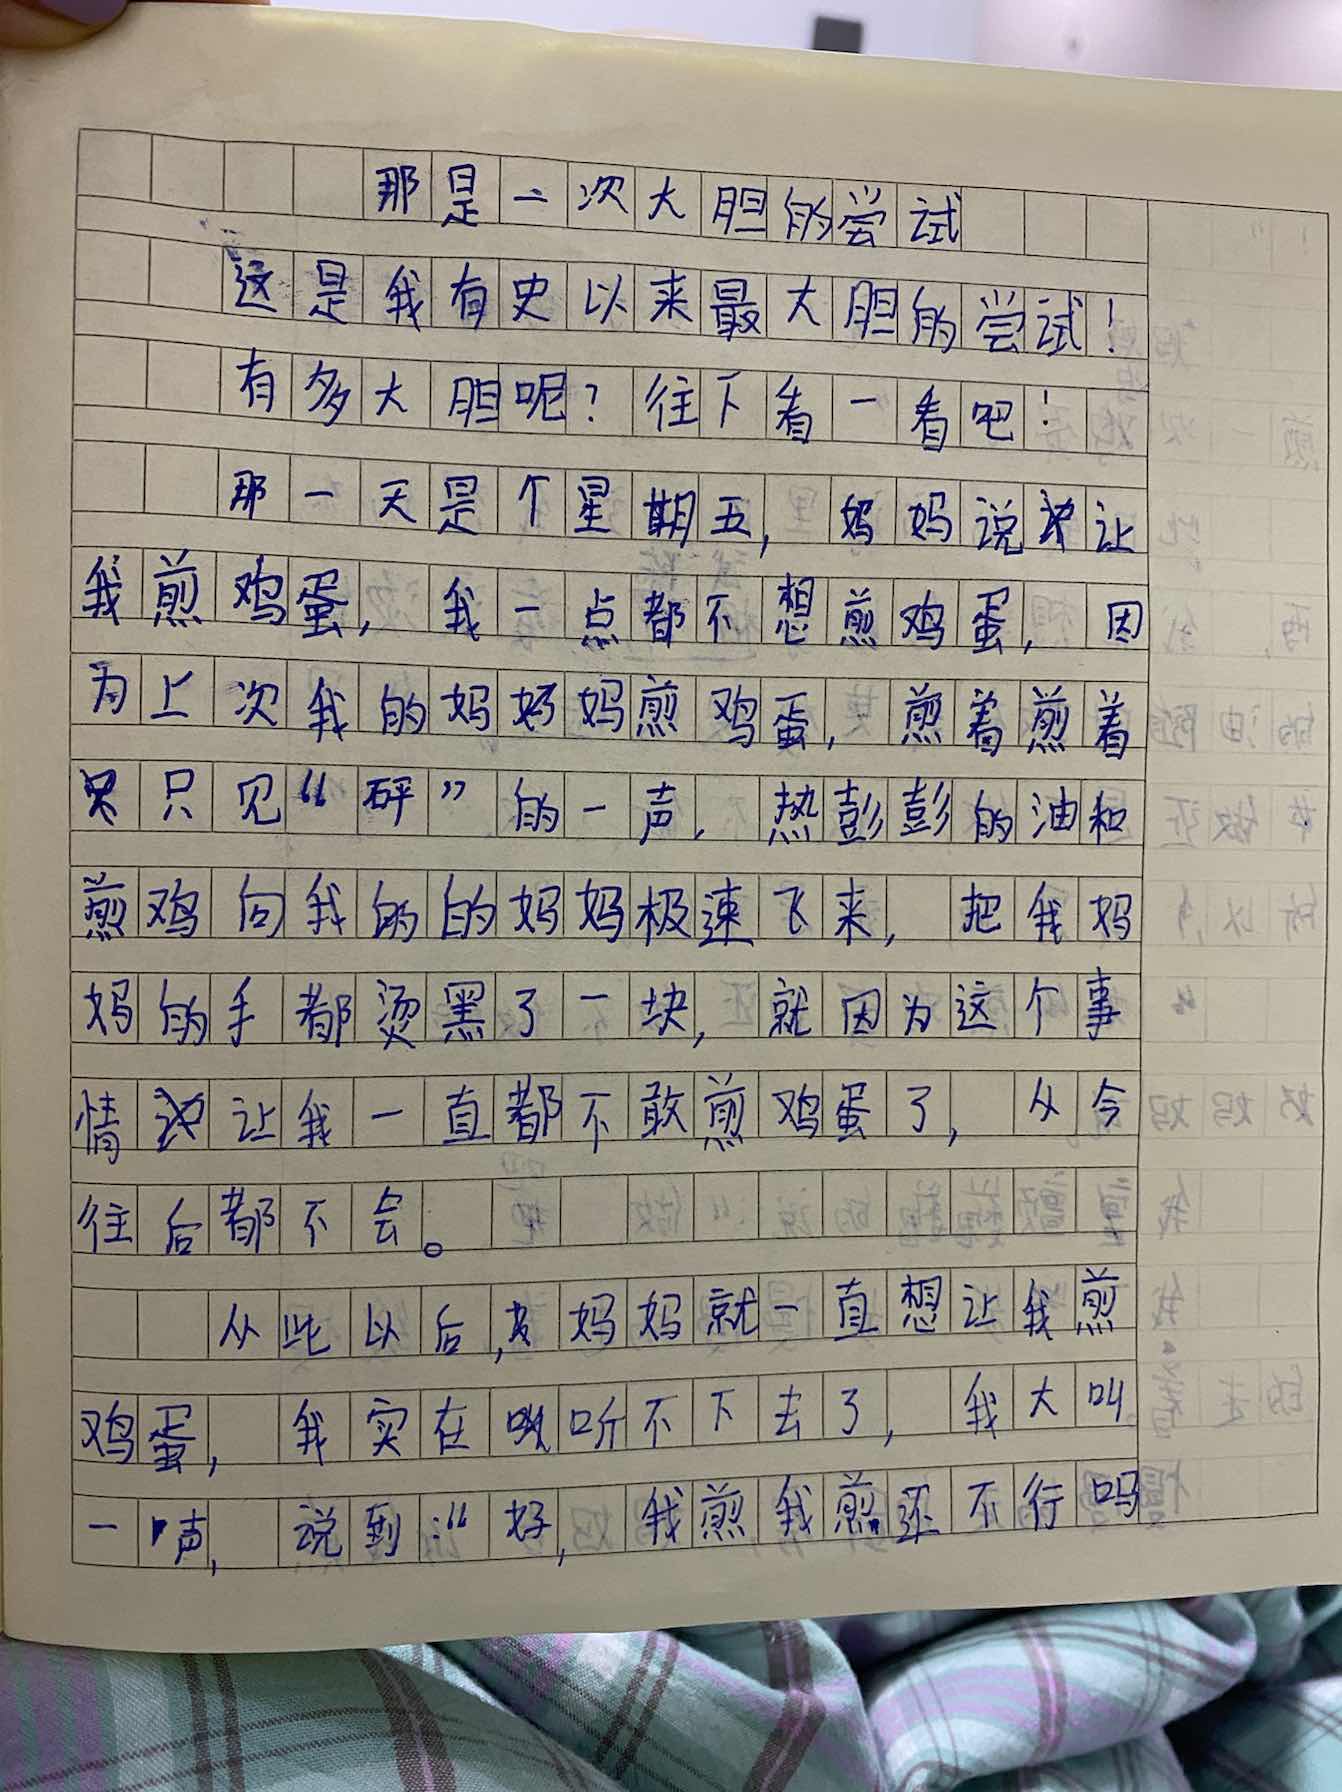 那是一次大胆的尝试
这是我有史以来最大胆的尝试！
有多大胆呢？往下看一看吧！
那一天是个星期五，妈妈说让
我煎鸡蛋，我一点都不想煎鸡蛋，因
为上次我的妈妈妈煎鸡蛋，煎着煎着
只见“砰”的一声，热彭彭的油和
煎鸡向我的的妈妈极速飞来，把我妈
妈的手都烫黑了一块，就因为这个事
情让我一直都不敢煎鸡蛋了，从今
往后都不会。
从此以后，妈妈就一直想让我煎
鸡蛋，我实在听不下去了，我大叫
一声，说到：“好，我煎我煎还不行吗